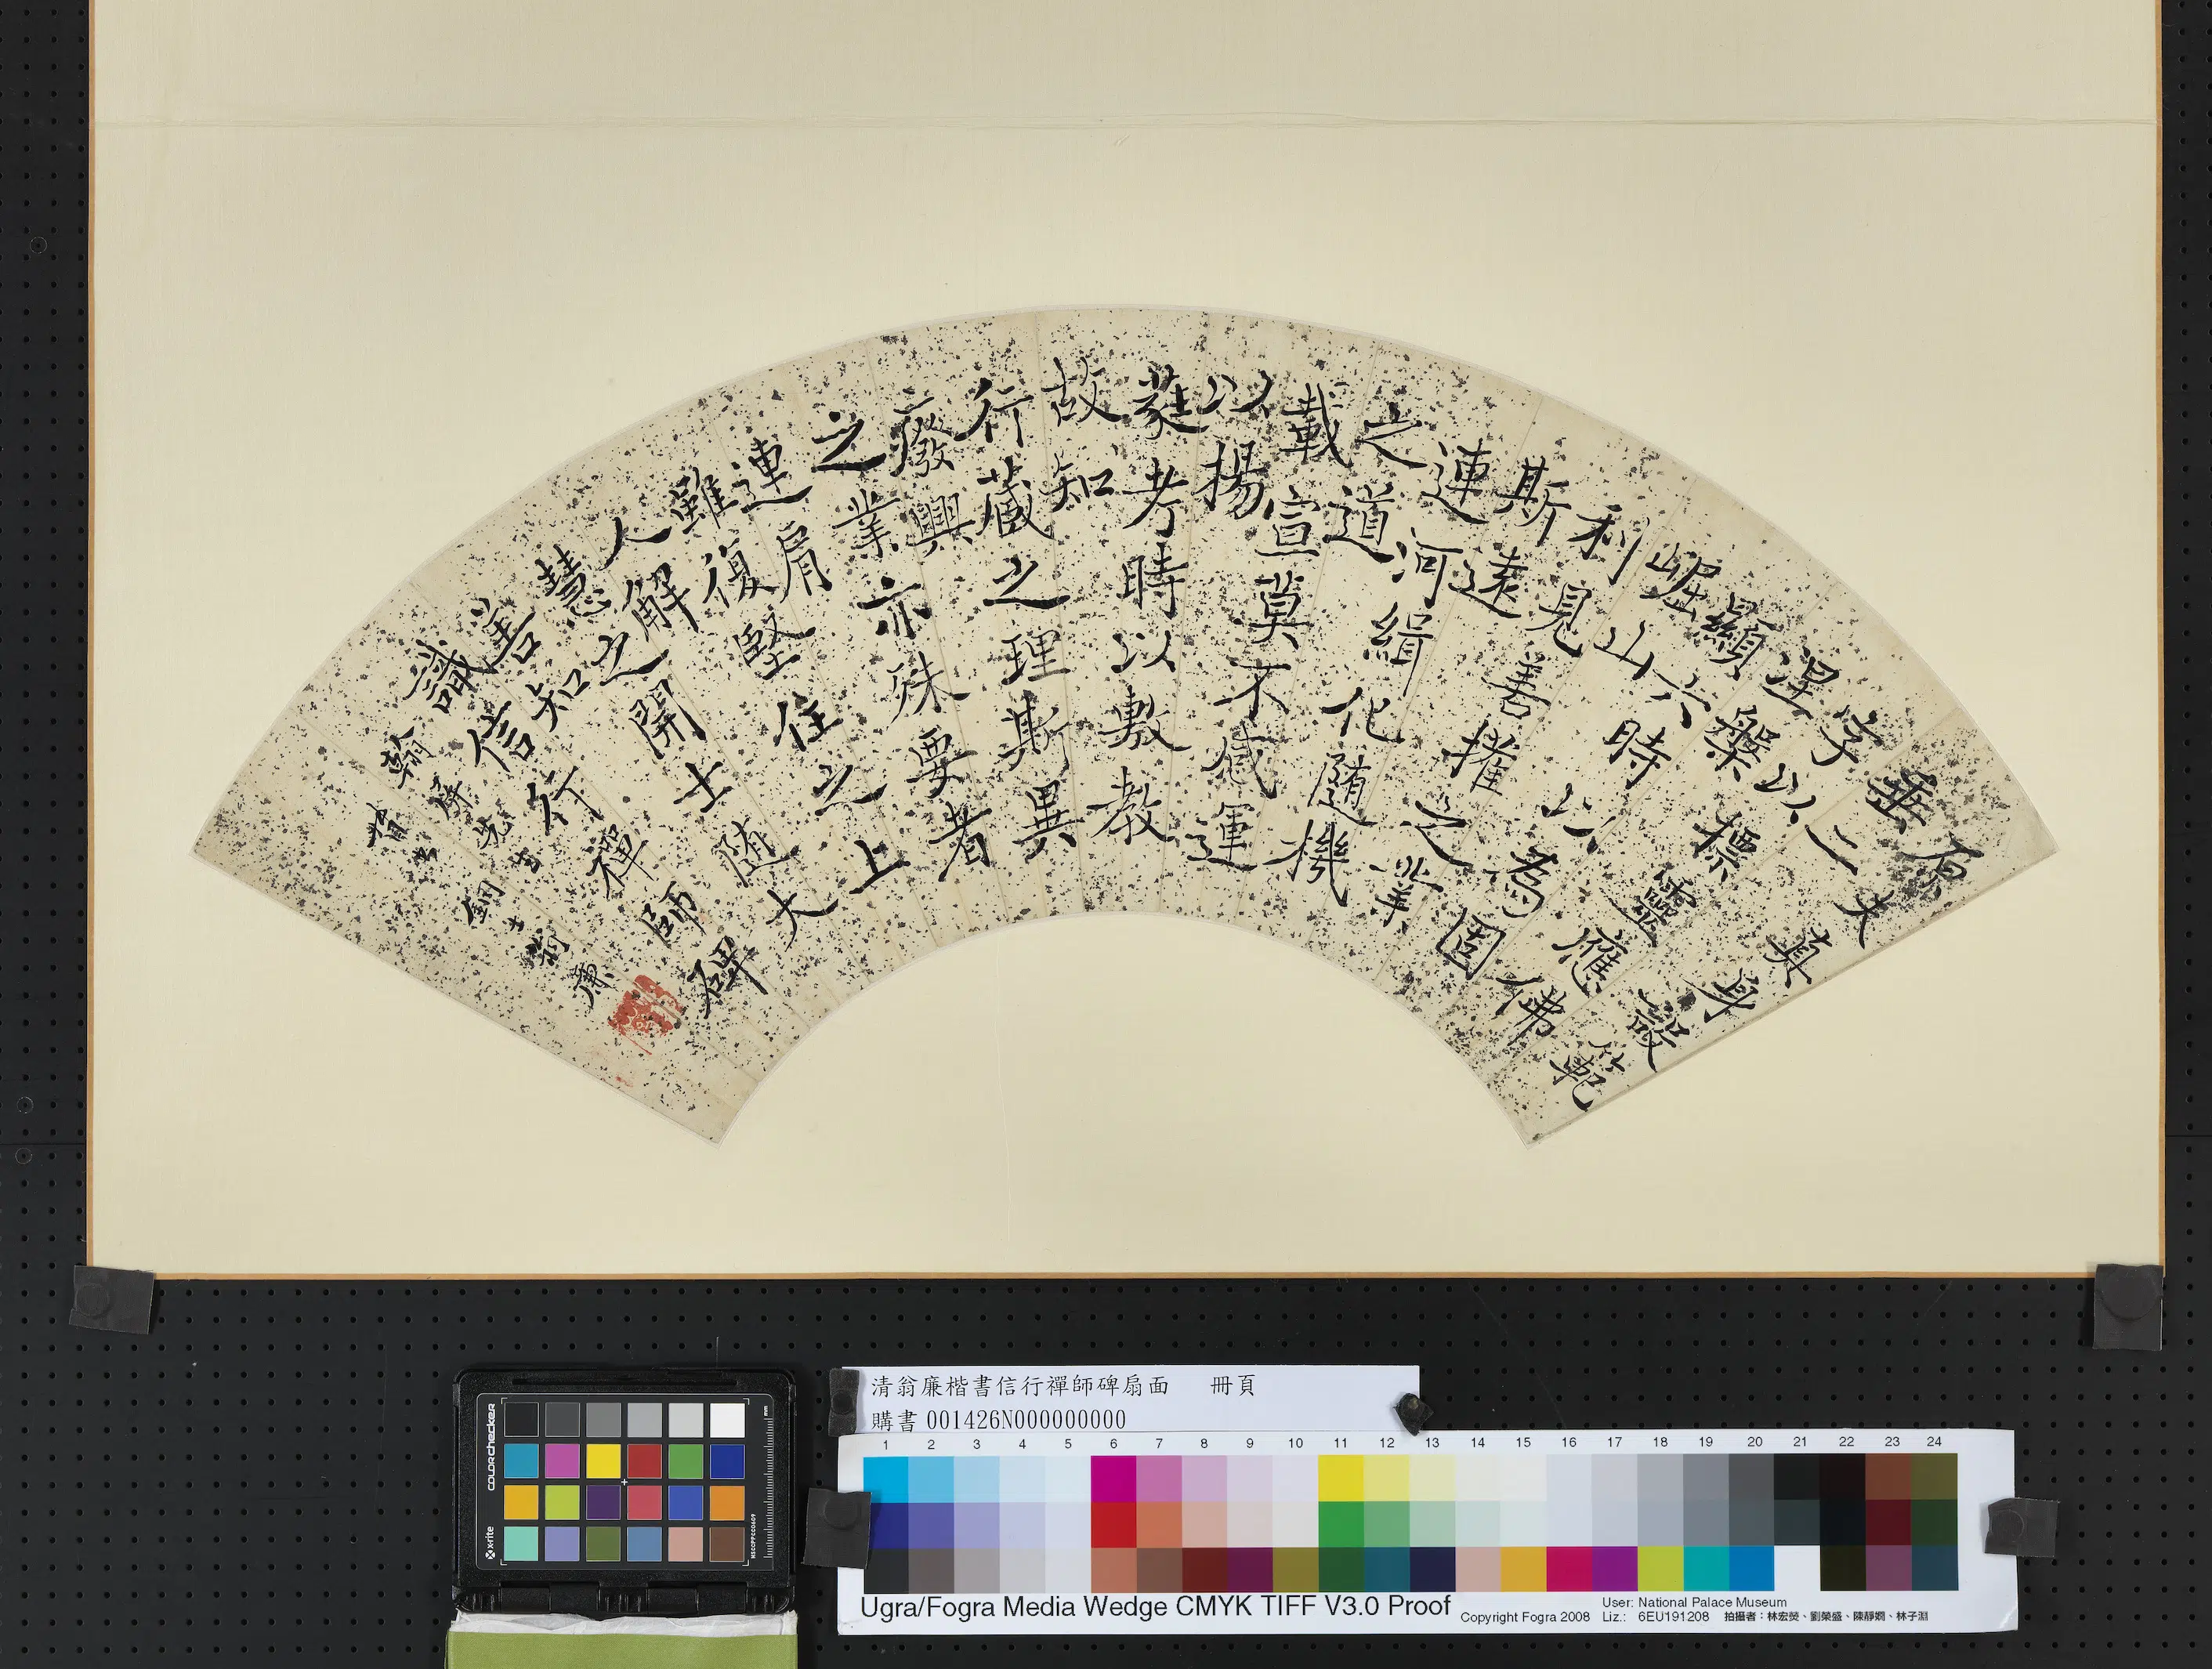 原夫真身設範
無二
字以標靈應佛
涅槃
顯六時以為固
崛山
利見善權之業
斯遠
連河緝化隨機
之道
載宣莫不減運
以揚
蕤考時以敷教
故知
行藏之理斯異
廢興
之業亦殊要者
連肩
雖復堅住之上
人解
慧之開士隨大
善知
識信行禪師碑
翰屏
銅士翁廉
清翁廉楷書信行禪師碑扇面 冊頁
購書001426N000000000
1 2 3 4 5 6 7 8 9 10 11 12 13 14 15 16 17 18 19 20 21 22 23 24
Ugra/Fogra Media Wedge CMYK TIFF V3.0 Proof
Copyright Fogra 2008
User: National Palace Museum
Liz.: 6EU191208 拍攝者：林宏熒、劉榮盛、陳靜嫻、林子淵
colorchecker
x-rite
mm